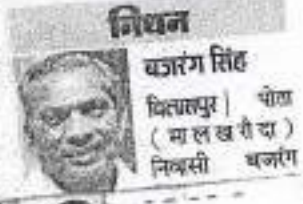 निधन
बजरंग सिंह
बिलासपुर| पोता
( मालखरौदा )
निवासी बजरंग